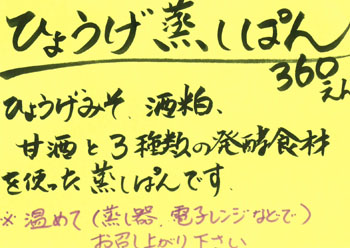 ひょうげ蒸しぱん
360えん
ひょうげみそ、酒粕、
甘酒と3種数の発酵食材
を使った蒸しぱんです。
※温めて(蒸し器、電子レンジなどで)
お召し上がり下さい